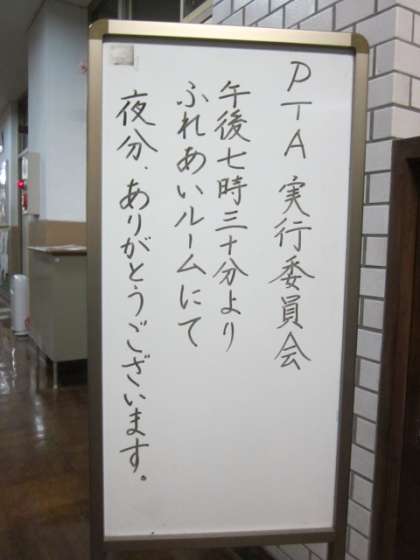 PTA 実行委員会
午後七時三十分より
ふれあいルームにて
夜分、ありがとうございます。